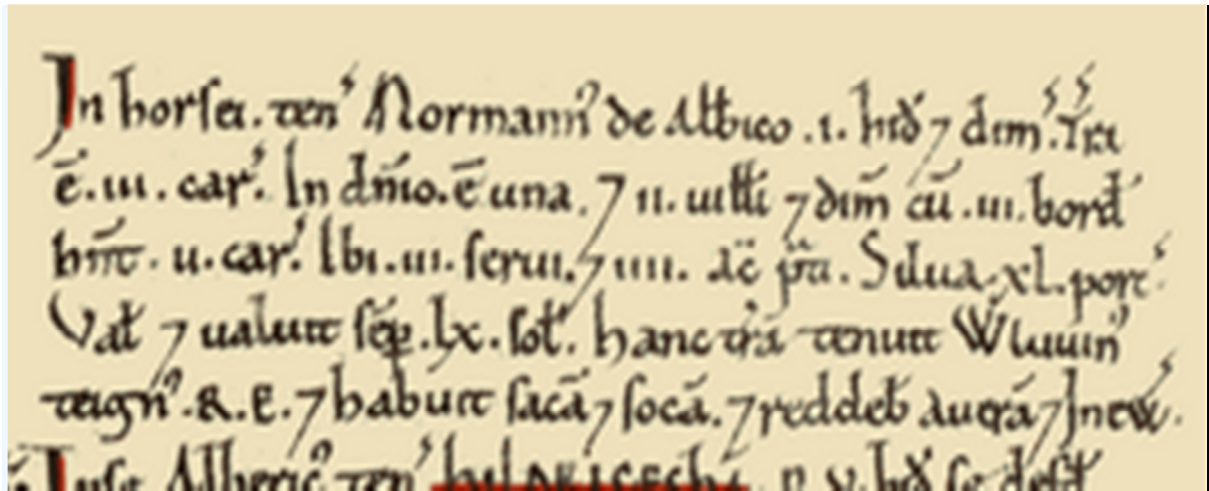 In horsei. ten' Normann' de Albico .i. hid' ⁊ dim'. Tra
ē .iii. car'. In dn̄io. ē una. ⁊ ii. uilli ⁊ dim̄ cū .iii. bord'
hn̄t. u. car'. Ibi .iii. serui. ⁊ iiii. ac̄ pti. Silua. xl. porc'.
Val ⁊ ualuit sēp .lx. sol'. hanc trā tenuit Wluuin'
teign' .R.E. ⁊ habuit sacā ⁊ socā. ⁊ reddeb auerā ⁊ Inew'.
Ipse Alberic' ten'